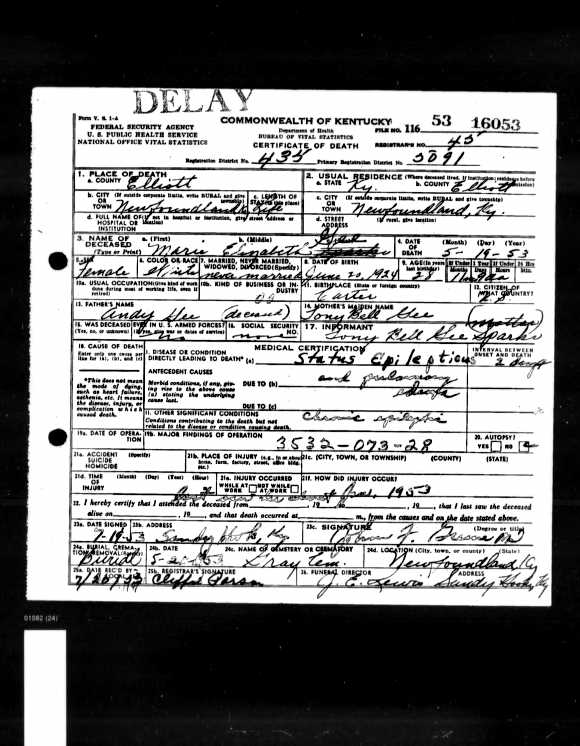 DELAY
Form V. S. 1-A
FEDERAL SECURITY AGENCY
U. S. PUBLIC HEALTH SERVICE
NATIONAL OFFICE VITAL STATISTICS
COMMONWEALTH OF KENTUCKY
Department of Health
BUREAU OF VITAL STATISTICS
CERTIFICATE OF DEATH
FILE NO. 116 53 16053
REGISTRAR'S NO. 45
Registration District No. 435 Primary Registration District No. 5091
1. PLACE OF DEATH
a. COUNTY Elliott
2. USUAL RESIDENCE (Where deceased lived. If institution: residence before admission)
a. STATE Ky. b. COUNTY Elliott
b. CITY (If outside corporate limits, write RURAL and give township) OR TOWN Newfoundland, Ky.
c. LENGTH OF STAY (in this place) Life
c. CITY (If outside corporate limits, write RURAL and give township) OR TOWN Newfoundland, Ky.
d. FULL NAME OF (If not in hospital or institution, give street address or location) HOSPITAL OR INSTITUTION
d. STREET ADDRESS (If rural, give location)
3. NAME OF DECEASED (Type or Print) a. (First) Marie b. (Middle) Elizabeth
4. DATE OF DEATH (Month) (Day) (Year) 5-19-53
5. SEX Female
6. COLOR OR RACE White
7. MARRIED, NEVER MARRIED, WIDOWED, DIVORCED (Specify) never married
8. DATE OF BIRTH June 20, 1924
9. AGE (In years last birthday) 28 If Under 1 Year Months Days If Under 24 Hrs Hours Min.
10a. USUAL OCCUPATION (Give kind of work done during most of working life, even if retired)
10b. KIND OF BUSINESS OR INDUSTRY
11. BIRTHPLACE (State or foreign country) Carter
12. CITIZEN OF WHAT COUNTRY?
13. FATHER'S NAME Andy Gee (deceased)
14. MOTHER'S MAIDEN NAME Tony Bell Gee
15. WAS DECEASED EVER IN U. S. ARMED FORCES? (Yes, no, or unknown) (If yes, give war or dates of service) no
16. SOCIAL SECURITY NO. none
17. INFORMANT Tony Bell Gee Sparks (Mother)
18. CAUSE OF DEATH
Enter only one cause per line for (a), (b), and (c)
MEDICAL CERTIFICATION
INTERVAL BETWEEN ONSET AND DEATH
I. DISEASE OR CONDITION DIRECTLY LEADING TO DEATH* (a) Status Epilepticus 2 days
*This does not mean the mode of dying, such as heart failure, asthenia, etc. It means the disease, injury, or complication which caused death.
ANTECEDENT CAUSES
Morbid conditions, if any, giving rise to the above cause (a) stating the underlying cause last.
DUE TO (b) and pulmonary edema
DUE TO (c)
II. OTHER SIGNIFICANT CONDITIONS
Conditions contributing to the death but not related to the disease or condition causing death.
Chronic epileptic
19a. DATE OF OPERATION
19b. MAJOR FINDINGS OF OPERATION
3532-073-28
20. AUTOPSY? YES NO
21a. ACCIDENT SUICIDE HOMICIDE (Specify)
21b. PLACE OF INJURY (e.g., in or about home, farm, factory, street, office bldg. etc.)
21c. (CITY, TOWN, OR TOWNSHIP) (COUNTY) (STATE)
21d. TIME OF INJURY (Month) (Day) (Year) (Hour)
21e. INJURY OCCURRED WHILE AT WORK NOT WHILE AT WORK
21f. HOW DID INJURY OCCUR?
1953
22. I hereby certify that I attended the deceased from , 19 , to , 19 , that I last saw the deceased
alive on , 19 , and that death occurred at m., from the causes and on the date stated above.
23a. DATE SIGNED 7-19-53
23b. ADDRESS Sandy Hook, Ky
23c. SIGNATURE (Degree or title)
24a. BURIAL, CREMATION, REMOVAL (Specify) Burial
24b. DATE
24c. NAME OF CEMETERY OR CREMATORY Gray Cem.
24d. LOCATION (City, town, or county) (State) Newfoundland, Ky
25a. DATE REC'D BY LOCAL REG.
25b. REGISTRAR'S SIGNATURE
26. FUNERAL DIRECTOR ADDRESS
J. E. Lewis Sandy Hook, Ky
01082 (24)